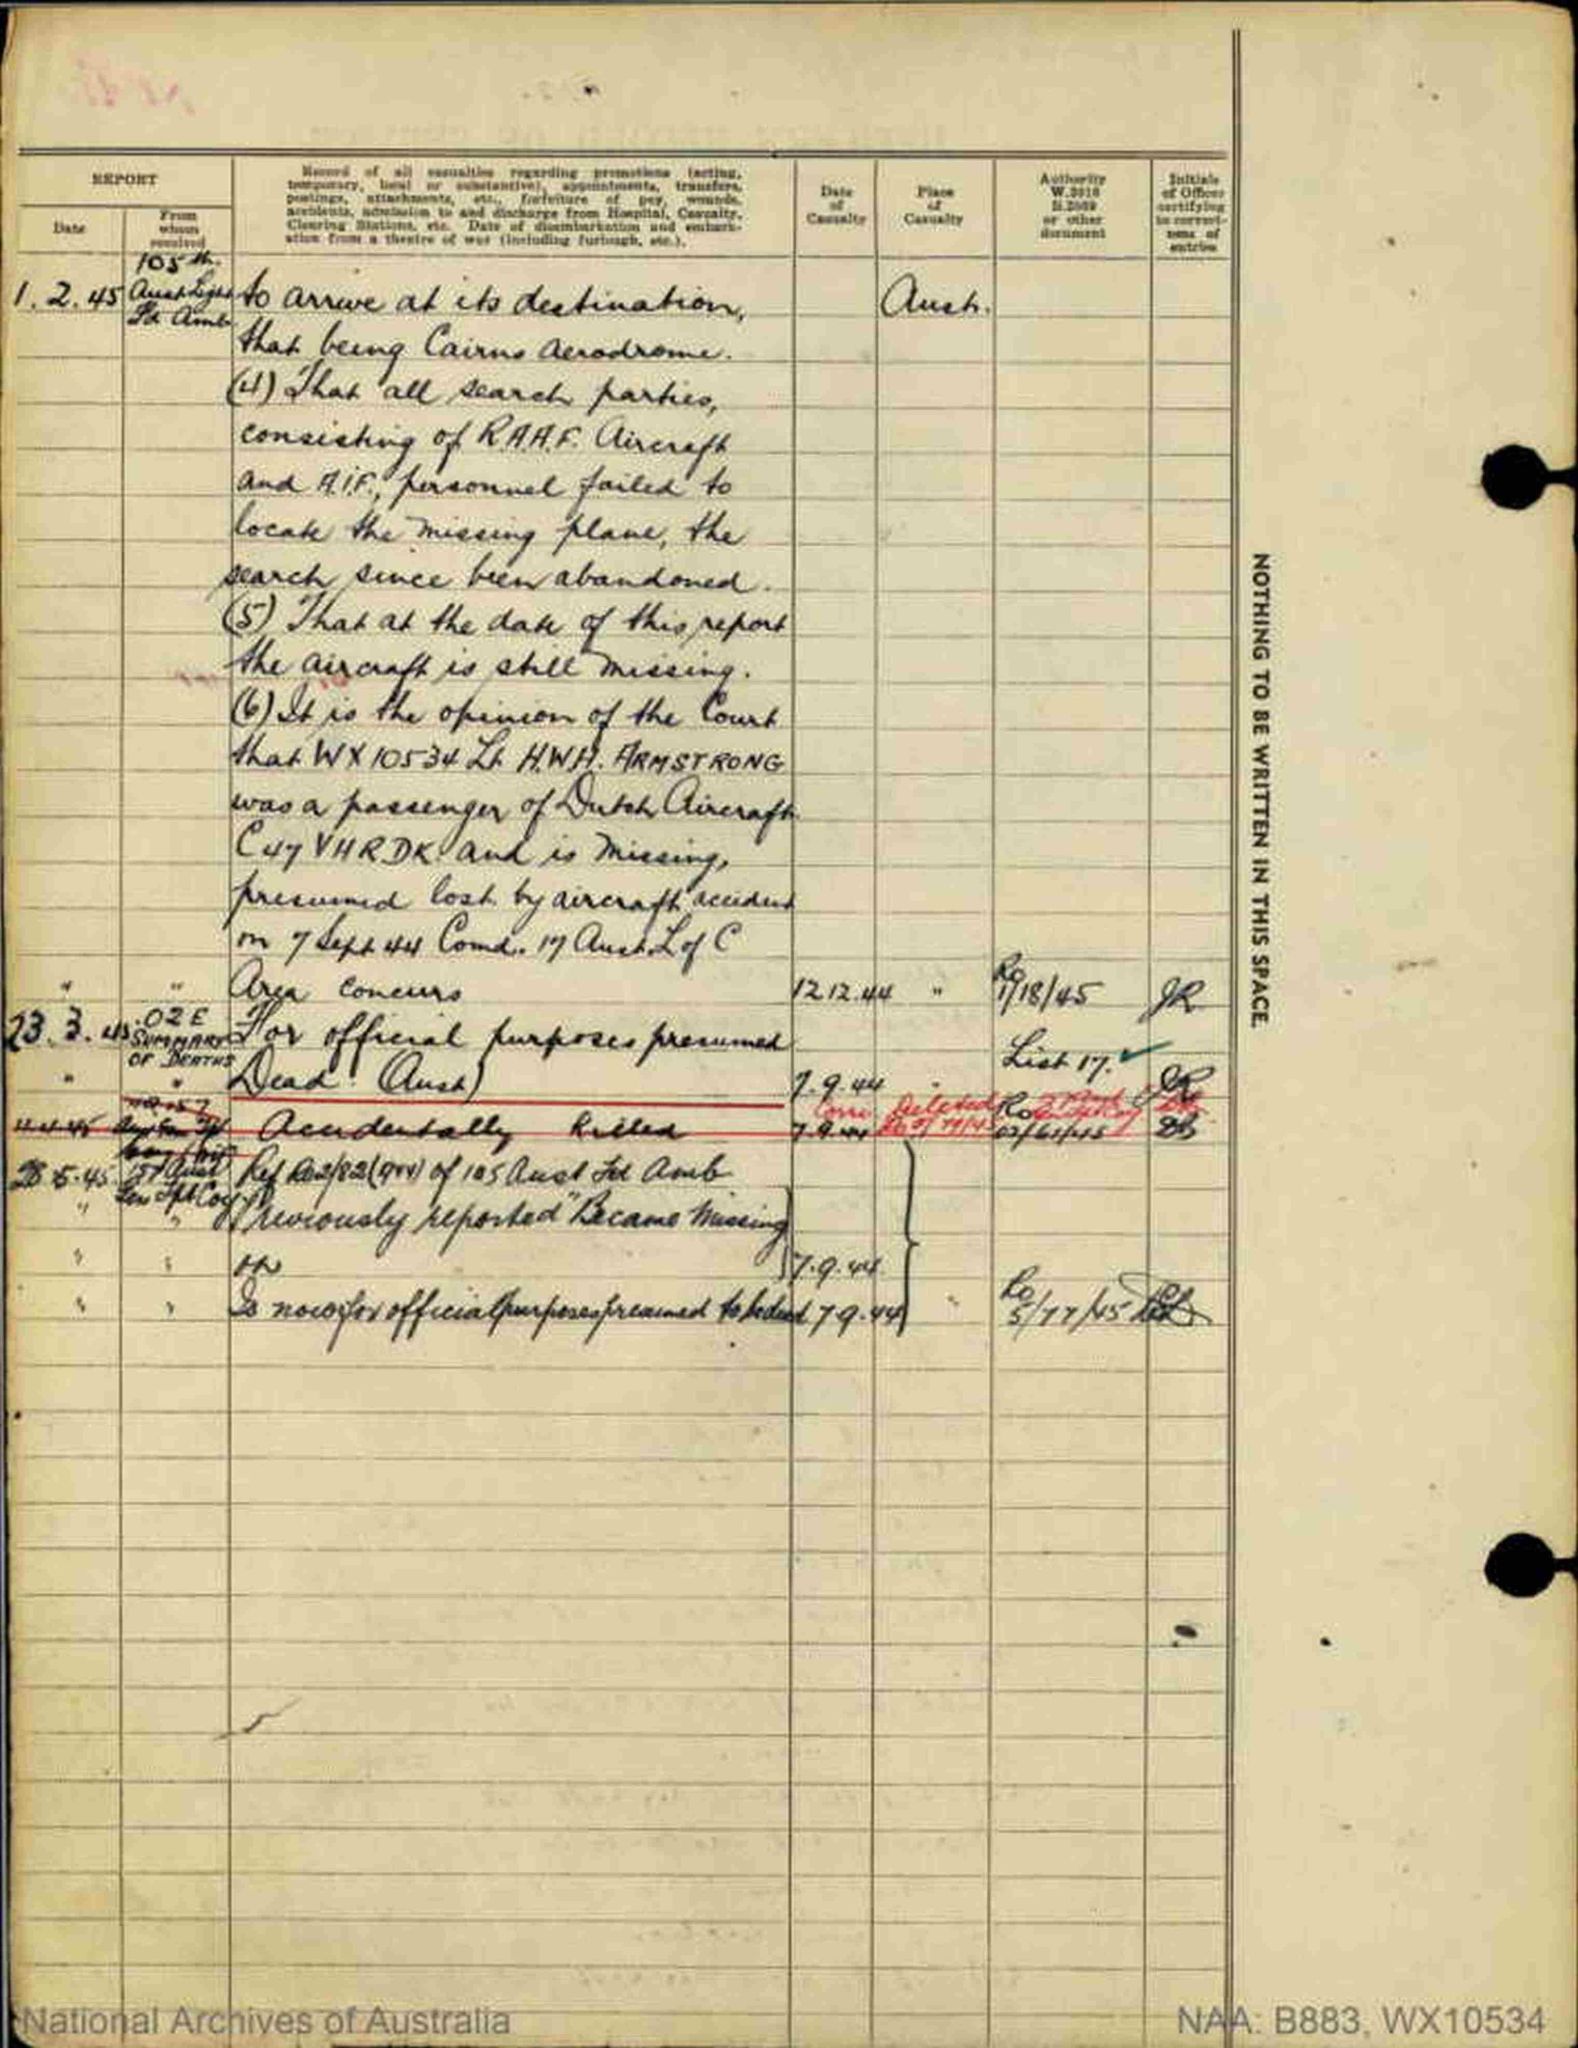 REPORT
Date
From whom received
Record of all casualties regarding promotions (acting,
temporary, local or substantive), appointments, transfers,
postings, attachments, etc., forfeiture of pay, wounds,
accidents, admission to and discharge from Hospital, Casualty,
Clearing Stations, etc. Date of disembarkation and embark-
ation from a theatre of war (including furlough, etc.).
Date of Casualty
Place of Casualty
Authority
or other document
Initials of Officer certifying to correct-ness of entries
105th
1.2.45 Aust Light to arrive at its destination, Aust.
Fd Amb
that being Cairns Aerodrome.
(4) That all search parties,
consisting of R.A.A.F. Aircraft
and A.I.F., personnel failed to
locate the missing plane, the
search since been abandoned.
(5) That at the date of this report
the aircraft is still missing.
(6) It is the opinion of the Court
that WX10534 Lt H.W.H. ARMSTRONG
was a passenger of Dutch Aircraft
C47 VHRDK and is missing,
presumed lost by aircraft accident
on 7 Sept 44 Comd. 17 Aust. L of C
" " Area concurs 12.12.44 " Ro 1/18/45 JR
23.3.45 02E SUMMARY OF DEATHS For official purposes presumed List 17.
" " Dead (Aust) 7.9.44 " JR
11.4.45 Accidentally Killed 7.9.44 Deleted Ro
28.5.45 Aust Gen Spt Coy Ref Ro 2/82(944) of 105 Aust Fd Amb
" " Previously reported "Became Missing
" " on 7.9.44
" " Is now for official purposes presumed to be dead 7.9.44 " Ro 5/77/45
NOTHING TO BE WRITTEN IN THIS SPACE.
National Archives of Australia
NAA: B883, WX10534